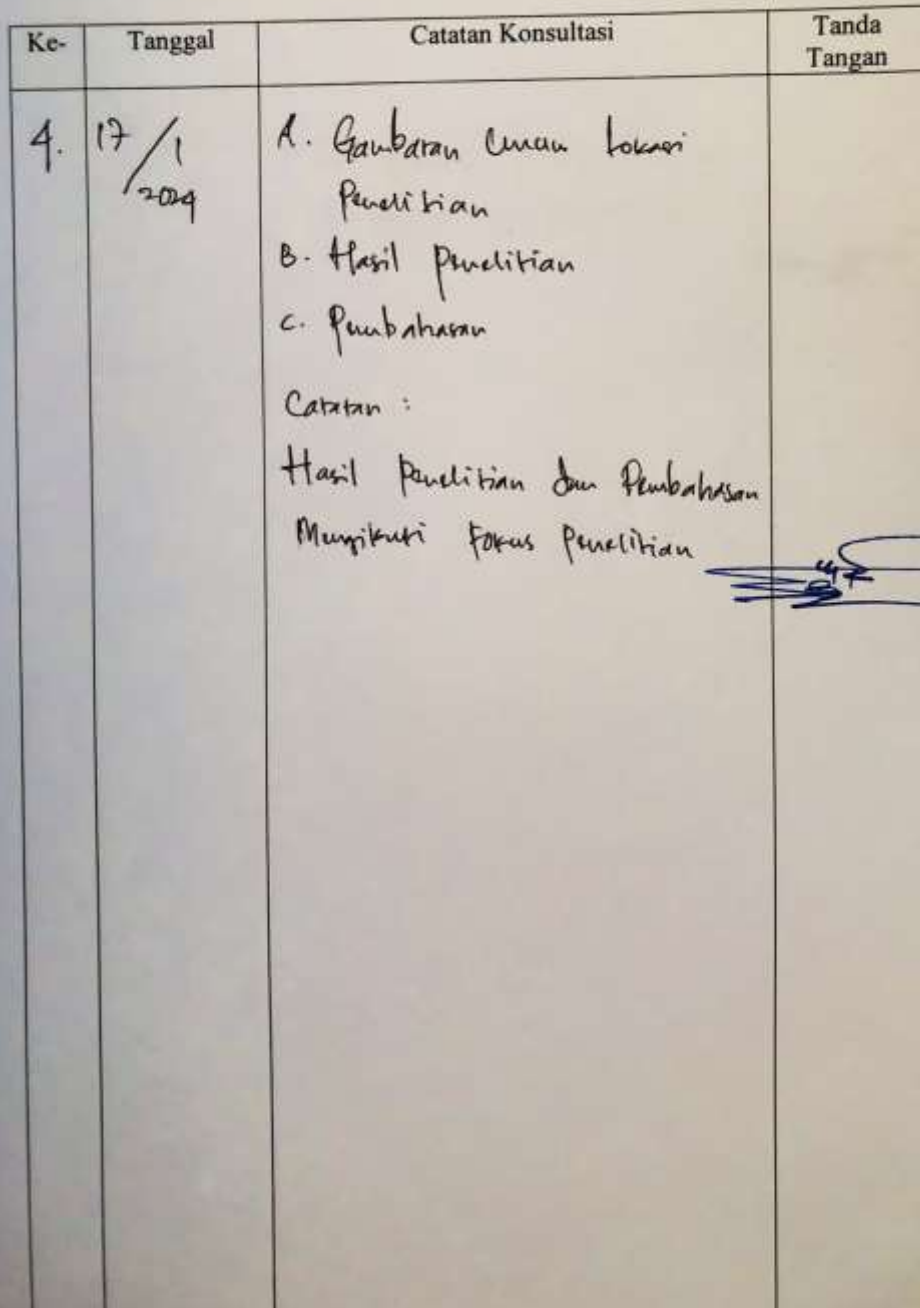 Ke- Tanggal Catatan Konsultasi Tanda
Tangan
4. 17/1 A. Gambaran Umum Lokasi
2024 Penelitian
B. Hasil penelitian
C. Pembahasan
Catatan :
Hasil penelitian dan Pembahasan
Mengikuti Fokus Penelitian